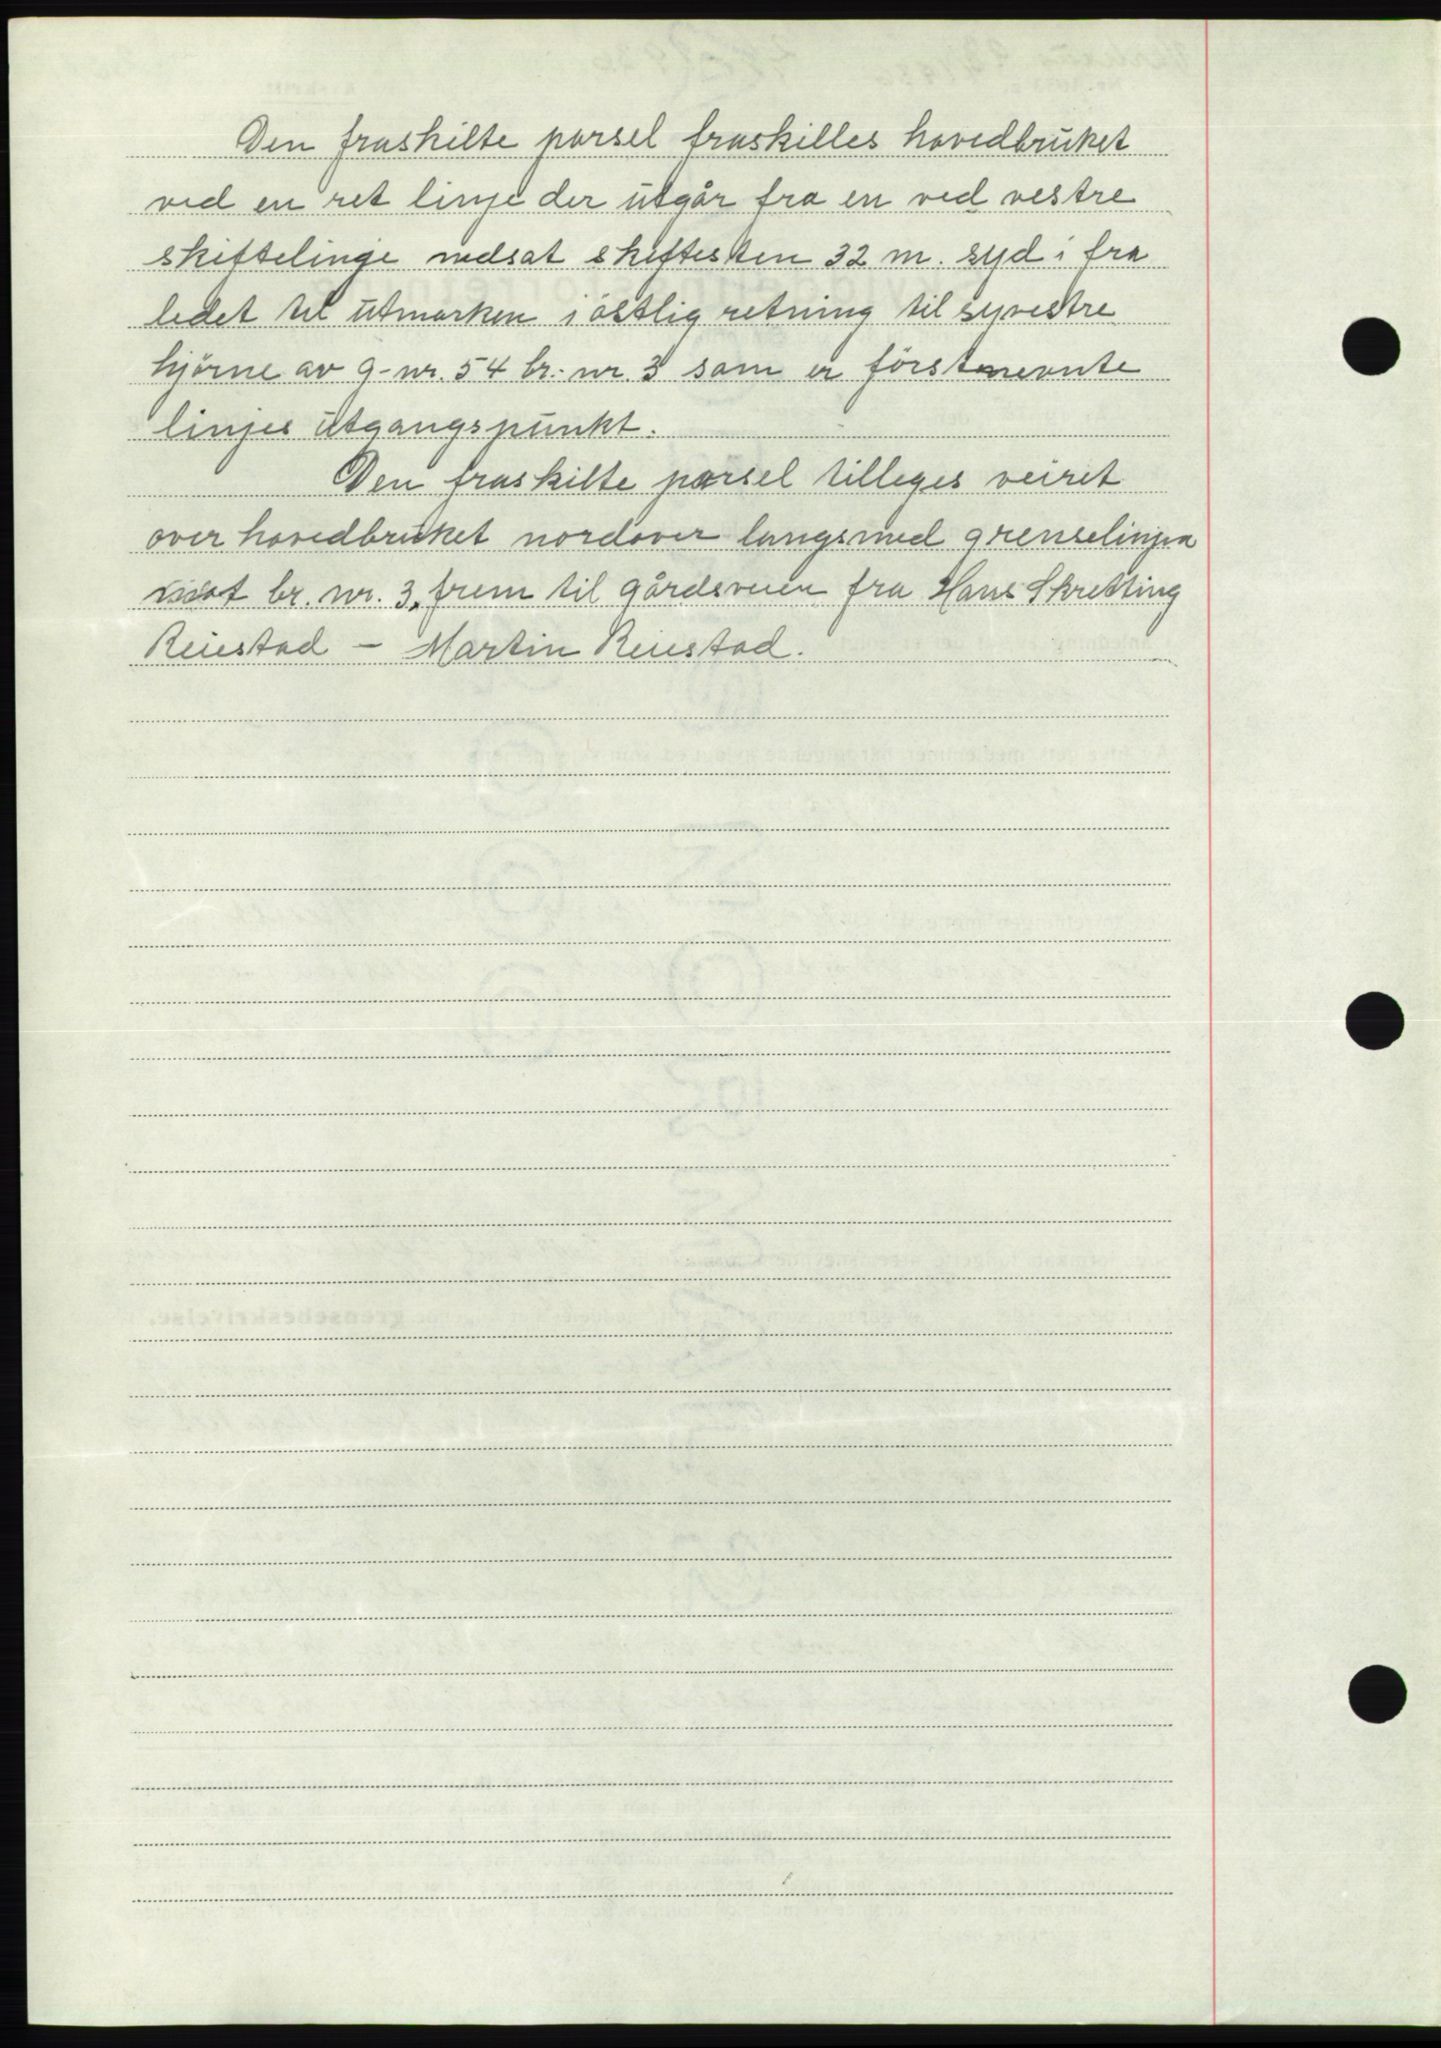 Den fraskilte parsel fraskilles hovedbruket
ved en ret linje der utgår fra en ved vestre
skiftelinje nedsat skiftesten 32 m. syd i fra
ledet til utmarken i östlig retning til syvestre
hjörne av g-nr. 54 br.-nr. 3 som er förstnevnte
linjes utgangspunkt.
Den fraskilte parsel tilleges veiret
over hovedbruket nordover langsmed grenselinjen
mot br. nr. 3, frem til gårdsveien fra Hans Skretting
Reiestad - Martin Reiestad.